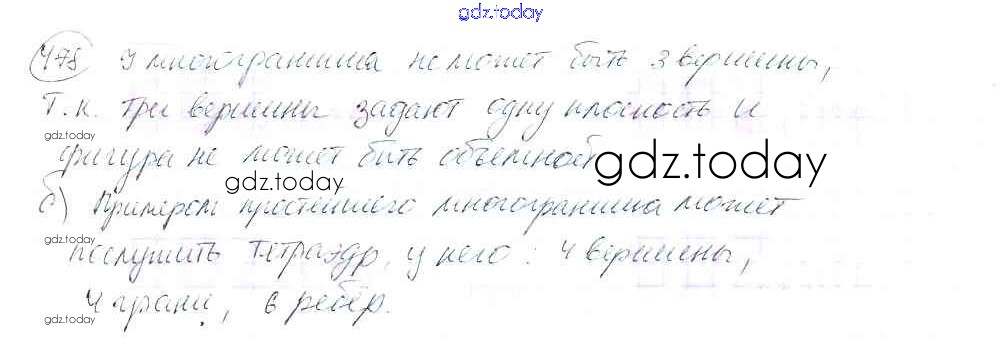 gdz.today
478 У многогранника не может быть 3 вершины,
т.к. три вершины задают одну плоскость и
gdz.today
фигура не может быть объемной
gdz.today
gdz.today
б) Примером простейшего многогранника может
gdz.today
послужить тетраэдр, у него: 4 вершены,
4 грани, 6 рёбер.
gdz.today